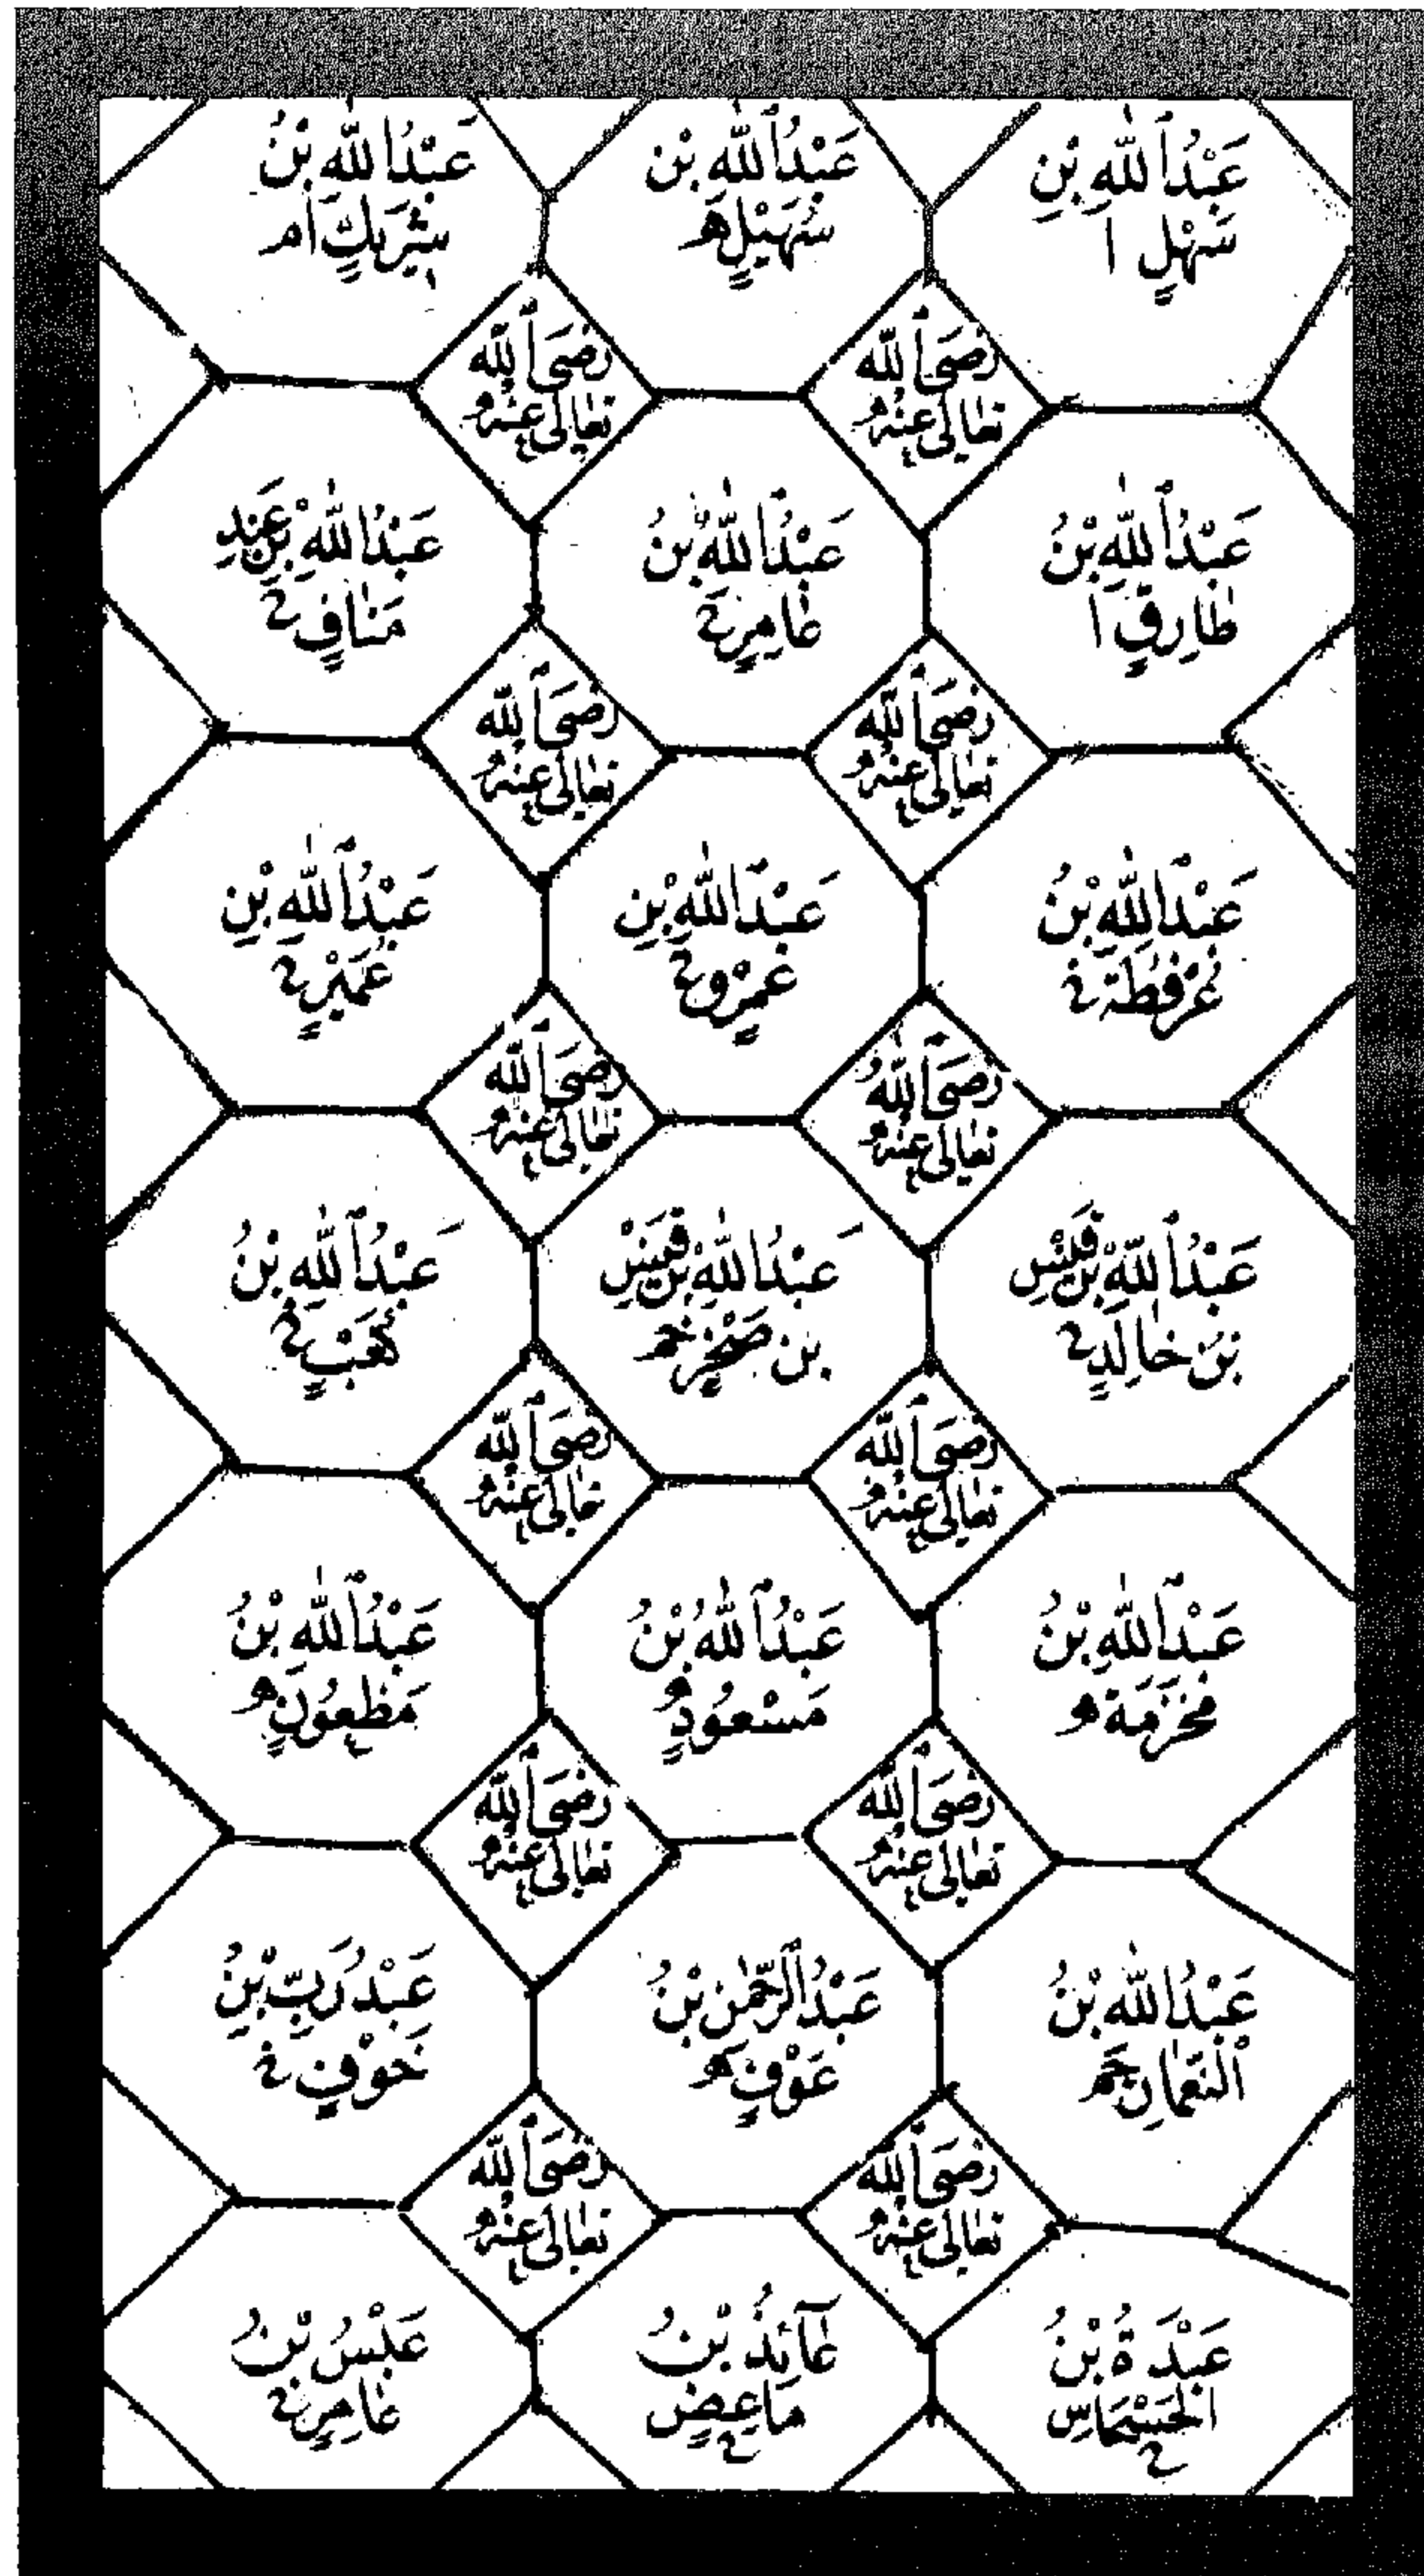 عَبْدُ ٱللّٰهِ بْنِ
سَهْلٍ ا
عَبْدُ ٱللّٰهِ بْنِ
سُهَيْلٍ ه
عَبْدُ اللّٰهِ بْنُ
شَرِيكٍ ام
رَضِىَ ٱللّٰه
تَعَالٰى عَنْهُ
رَضِىَ ٱللّٰه
تَعَالٰى عَنْهُ
عَبْدُ ٱللّٰهِ بْنُ
طَارِقٍ ا
عَبْدُ ٱللّٰهِ بْنُ
عَامِرٍ
عَبْدُ اللّٰهِ بْنِ عَبْدِ
مَنَافٍ
رَضِىَ ٱللّٰه
تَعَالٰى عَنْهُ
رَضِىَ ٱللّٰه
تَعَالٰى عَنْهُ
عَبْدُ ٱللّٰهِ بْنُ
عُرْفُطَةَ
عَبْدُ ٱللّٰهِ بْنِ
عَمْرٍو
عَبْدُ ٱللّٰهِ بْنِ
عُمَيْرٍ
رَضِىَ ٱللّٰهُ
تَعَالٰى عَنْهُ
رَضِىَ ٱللّٰه
تَعَالٰى عَنْهُ
عَبْدُ ٱللّٰهِ بْنُ قَيْسِ
بْنُ خَالِدٍ
عَبْدُ اللّٰهِ بْنُ قَيْسِ
بْنِ صَخْرٍ
عَبْدُ ٱللّٰهِ بْنُ
كَعْبٍ
رَضِىَ ٱللّٰه
تَعَالٰى عَنْهُ
رَضِىَ ٱللّٰه
تَعَالٰى عَنْهُ
عَبْدُ ٱللّٰهِ بْنُ
مَخْرَمَةَ
عَبْدُ ٱللّٰهِ بْنُ
مَسْعُودٍ
عَبْدُ ٱللّٰهِ بْنُ
مَظْعُونٍ
رَضِىَ ٱللّٰه
تَعَالٰى عَنْهُ
رَضِىَ ٱللّٰه
تَعَالٰى عَنْهُ
عَبْدُ اللّٰهِ بْنُ
ٱلنُّعْمَانِ
عَبْدُ ٱلرَّحْمٰنِ بْنُ
عَوْفٍ
عَبْدُ رَبِّ بْنُ
حَوْفٍ
رَضِىَ ٱللّٰه
تَعَالٰى عَنْهُ
رَضِىَ ٱللّٰه
تَعَالٰى عَنْهُ
عَبْدَةُ بْنُ
الْحَسْحَاسِ
عَآئِذُ بْنُ
مَاعِضٍ
عَبْسُ بْنُ
عَامِرٍ